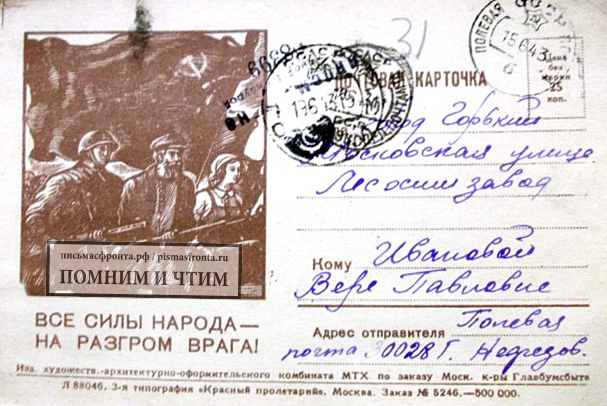 31
ПОЛЕВАЯ
15 6 43
ПОЧТОВАЯ КАРТОЧКА
Цена
без
марки
25
коп.
Город Горький
Московская улица
Лесосии завод
Кому Ивановой
Вере Павловне
Адрес отправителя Полевая
почта 30028 Г. Нефедов.
письмасфронта.рф / pismasfronta.ru
ПОМНИМ И ЧТИМ
ВСЕ СИЛЫ НАРОДА —
НА РАЗГРОМ ВРАГА!
Изд. художеств.-архитектурно-оформительского комбината МТХ по заказу Моск. к-ры Главбумсбыта
Л 88046. 3-я типография «Красный пролетарий». Москва. Заказ № 5246.—500 000.